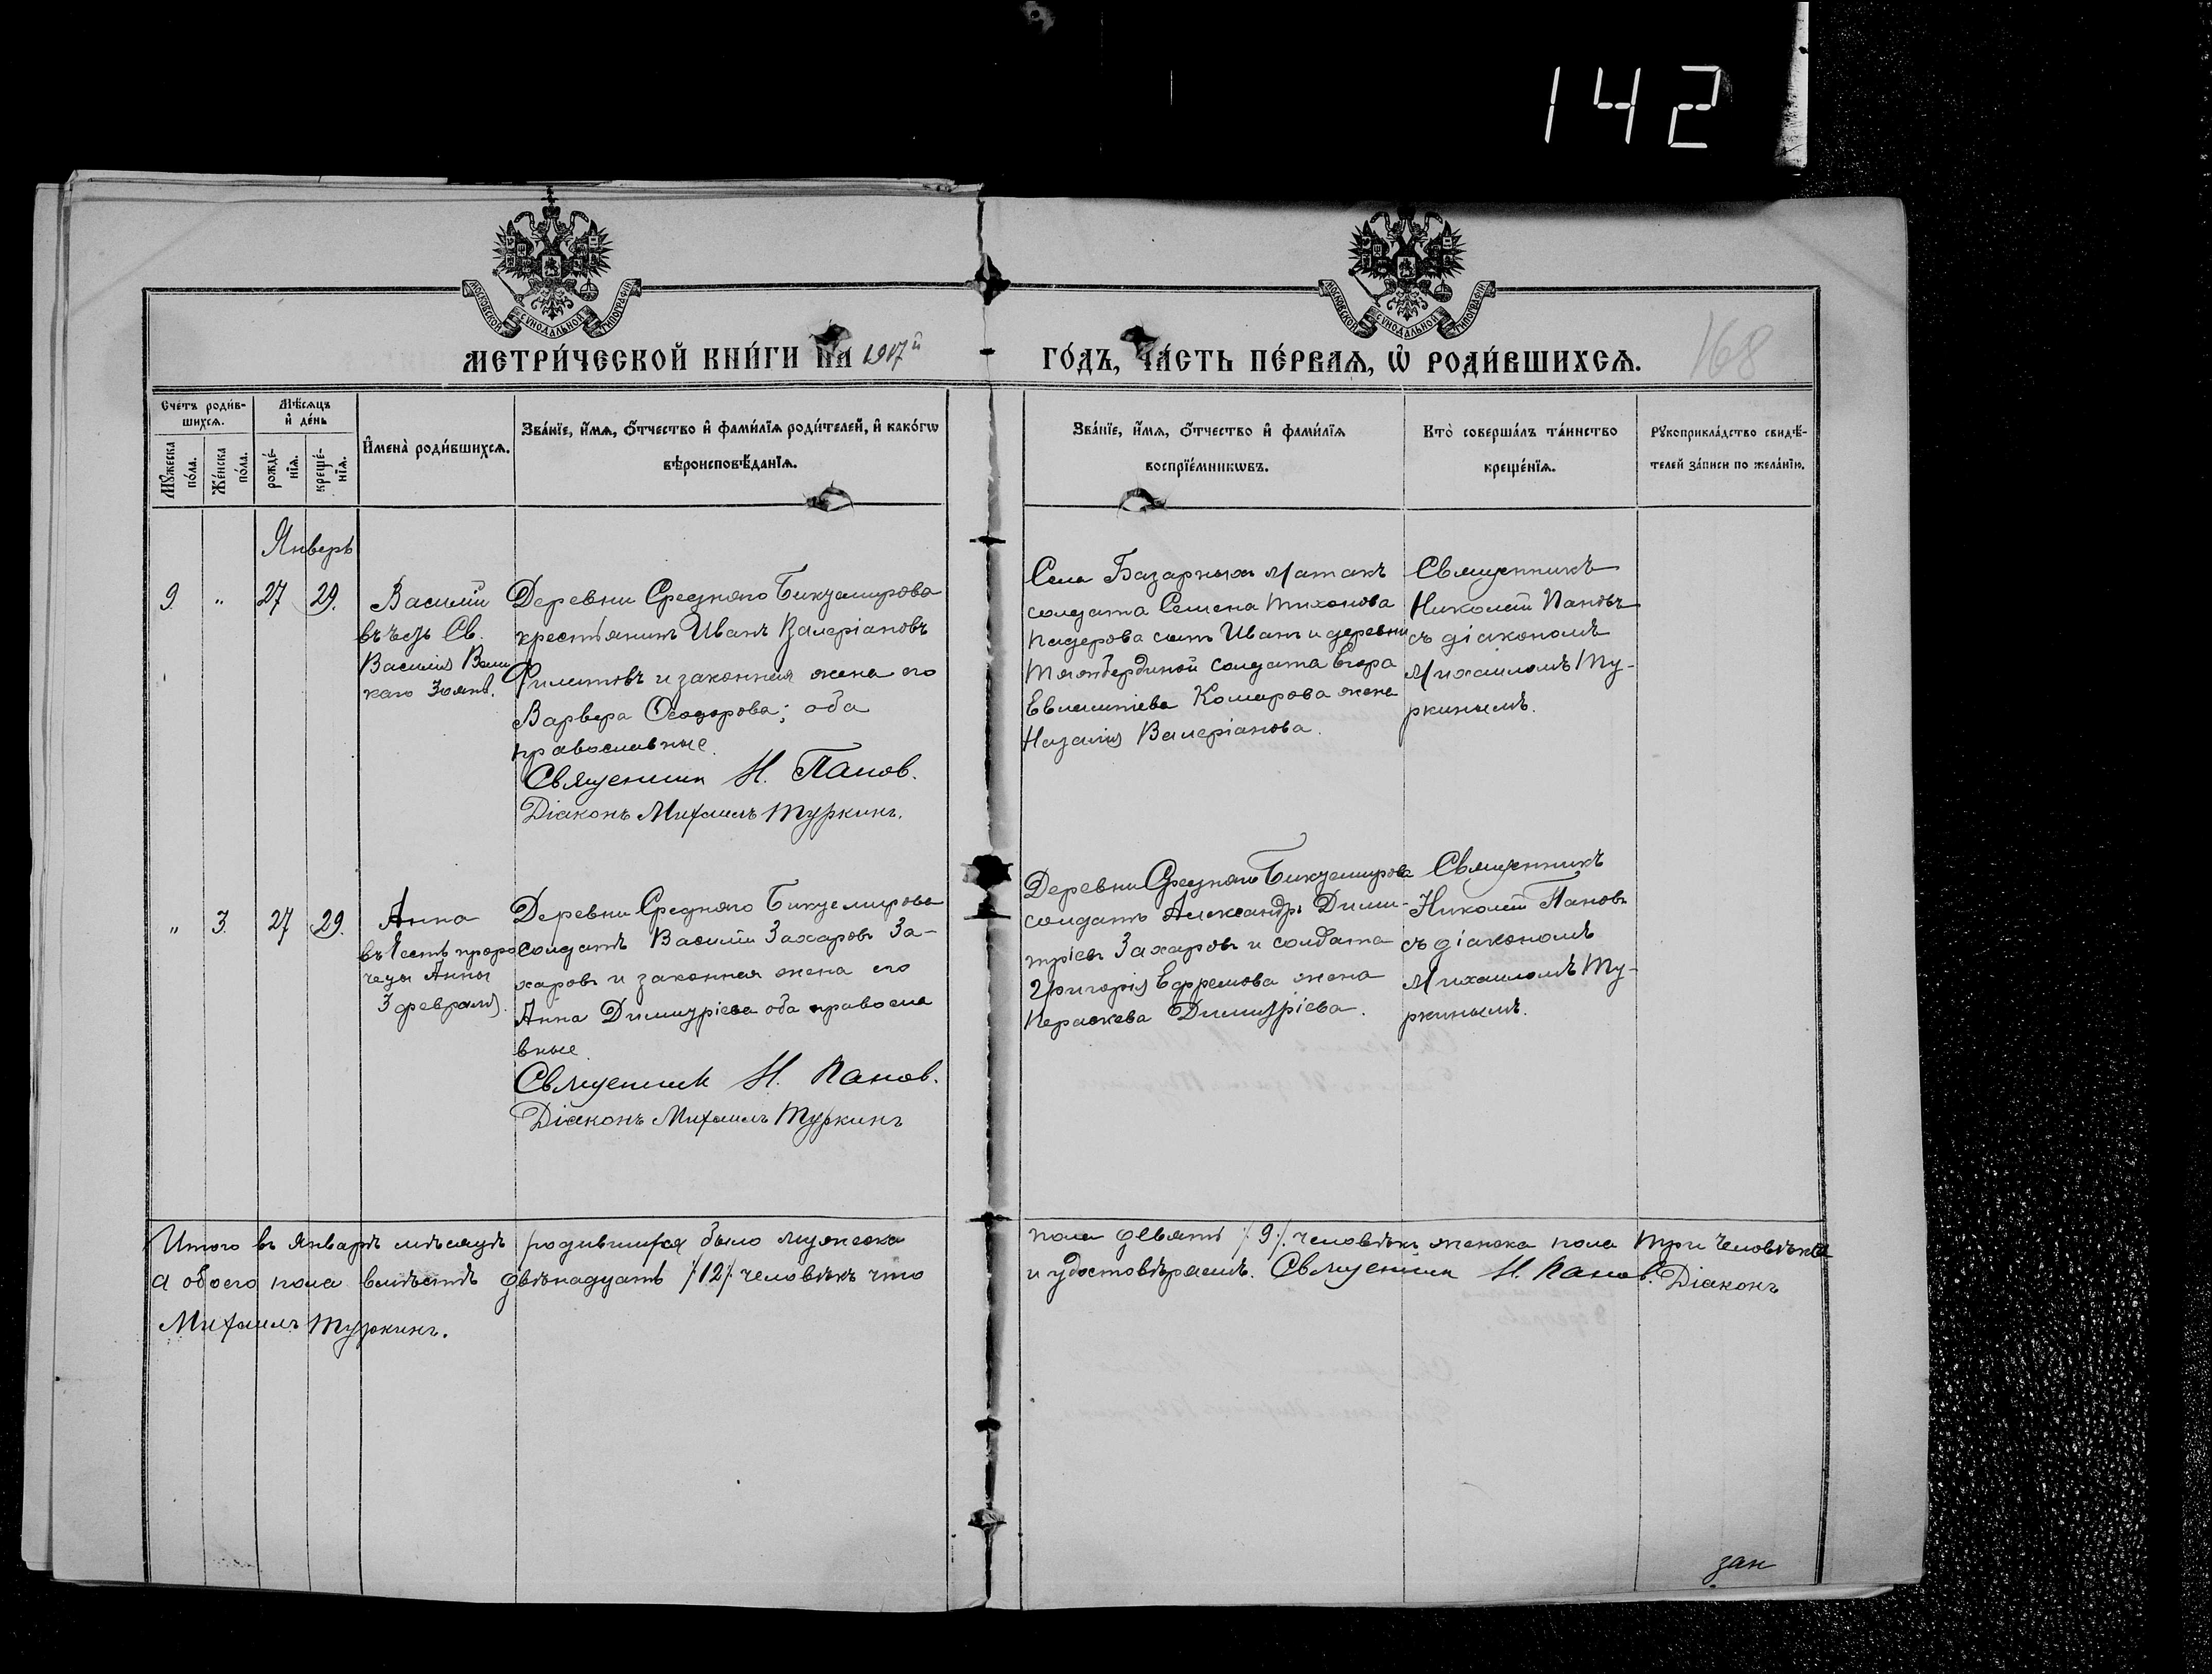 142
МОСКОВСКОЙ СѴНОДАЛЬНОЙ ТИПОГРАФІИ
МОСКОВСКОЙ СѴНОДАЛЬНОЙ ТИПОГРАФІИ
МЕТРИ́ЧЕСКОЙ КНИ́ГИ НА 1917й
ГО́ДЪ, ЧА́СТЬ ПЕ́РВАѦ, Ѡ҆ РОДИ́ВШИХСѦ.
168
Сче́тъ роди́в-
шихсѧ.
Мѣ́сѧцъ
и҆ де́нь
Мꙋ́жеска
по́ла.
Же́нска
по́ла.
рожде́-
нїѧ.
креще́-
нїѧ.
И҆мена̀ роди́вшихсѧ.
Зва́нїе, и҆́мѧ, ѻ҆́тчество и҆ фами́лїѧ роди́телей, и҆ како́гѡ
вѣроисповѣ́данїѧ.
Зва́нїе, и҆́мѧ, ѻ҆́тчество и҆ фами́лїѧ
воспрїе́мникѡвъ.
Кто̀ соверша́лъ та́инство
креще́нїѧ.
Рꙋкоприкла́дство свидѣ́-
телей за́писи по жела́нїю.
Январь
9. " 27 29.
Василій
въ честь Св.
Василія Вели
каго 30 янв.
Деревни Средняго Биктемирова
крестьянинъ Иванъ Валеріановъ
Филиповъ и законная жена его
Варвара Ѳеодорова; оба
православные.
Священник Н. Панов.
Діаконъ Михаилъ Туркинъ.
Села Базарныхъ Матакъ
солдата Семена Тихонова
сынъ Иванъ и деревни
солдата Егора
Комарова жена
Наталія Валеріанова.
Священникъ
Николай Пановъ
съ діакономъ
Михаиломъ Ту-
ркинымъ.
" 3. 27 29.
Анна
въ честь проро
чецы Анны
3 февраля.
Деревни Средняго Биктемирова
солдатъ Василій Захаровъ За-
харовъ и законная жена его
Анна Димитріева оба правосла
вные.
Священник Н. Панов.
Діаконъ Михаилъ Туркинъ
Деревни Средняго Биктемирова
солдатъ Александръ Дими-
тріевъ Захаровъ и солдата
Григорія Ефремова жена
Параскева Димитріева.
Священникъ
Николай Пановъ
съ діакономъ
Михаиломъ Ту-
ркинымъ.
Итого въ январѣ мѣсяцѣ родившихся было мужеска
пола девять /9/ человѣкъ женска пола три человѣка
а обоего пола вмѣстѣ двѣнадцать /12/ человѣкъ что
и удостовѣряемъ. Священник Н. Панов. Діаконъ
Михаилъ Туркинъ.
зап